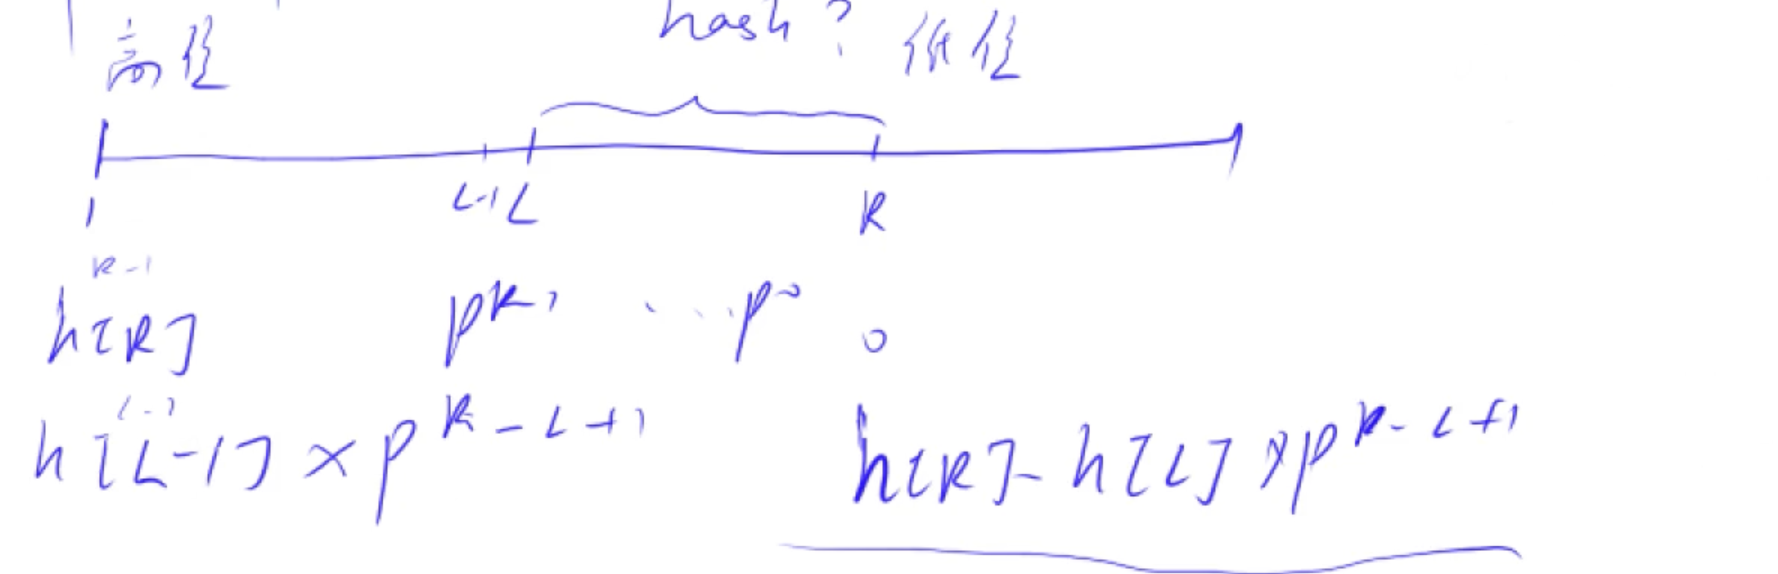 高位 hash? 低位
1 L-1 L R
R-1
h[R] p^{R-1} ... p^0 0
L-1
h[L-1] × p^{R-L+1} h[R]- h[L] × p^{R-L+1}